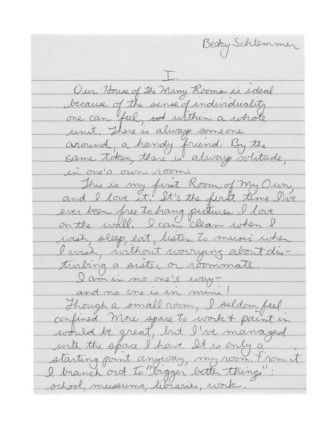 Becky Schlemmer
I.
Our House of The Many Rooms is ideal
because of the sense of individuality
one can feel, within a whole
unit. There is always someone
around, a handy friend. By the
same token, there is always solitude,
in one's own room.
This is my first Room of My Own,
and I love it! It's the first time I've
ever been free to hang pictures I love
on the wall. I can clean when I
wish, sleep, eat, listen to music when
I wish, without worrying about dis-
turbing a sister or roommate.
I am in no one's way—
and no one is in mine!
Though a small room, I seldom feel
confined. More space to work & paint in
would be great, but I've managed
with the space I have. It is only a
starting point anyway, my room. From it
I branch out to "bigger better things":
school, museums, libraries, work.